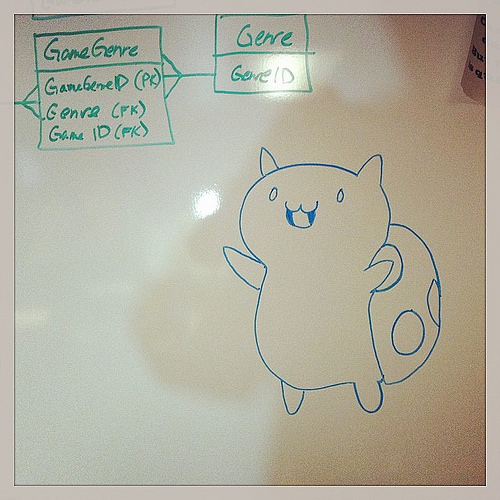 GameGenre
GameGenreID (PK)
Genre (FK)
Game ID (FK)
Genre
GenreID